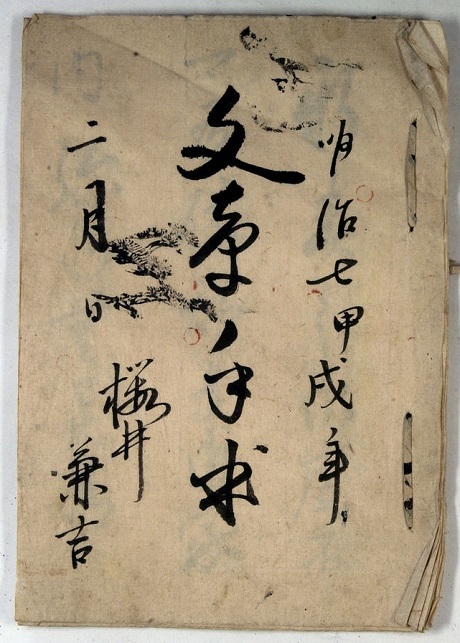 明治七甲戌年
文章手本
二月日
桜井
兼吉